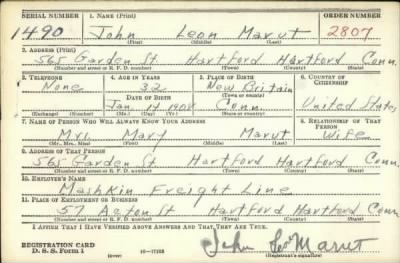 SERIAL NUMBER 1. NAME (Print) ORDER NUMBER
1490 John Leon Marut 2807
(First) (Middle) (Last)
2. ADDRESS (Print)
565 Garden St. Hartford Hartford Conn.
(Number and street or R. F. D. number) (Town) (County) (State)
3. TELEPHONE 4. AGE IN YEARS 5. PLACE OF BIRTH 6. COUNTRY OF CITIZENSHIP
None 32 New Britain
DATE OF BIRTH (Town or county)
Jan 17 1908 Conn. United States
(Exchange) (No.) (Mo.) (Day) (Yr.) (State or country)
7. NAME OF PERSON WHO WILL ALWAYS KNOW YOUR ADDRESS 8. RELATIONSHIP OF THAT PERSON
Mrs. Mary Marut Wife
(Mr., Mrs., Miss) (First) (Middle) (Last)
9. ADDRESS OF THAT PERSON
565 Garden St Hartford Hartford Conn
(Number and street or R. F. D. number) (Town) (County) (State)
10. EMPLOYER'S NAME
Mashkin Freight Line
11. PLACE OF EMPLOYMENT OR BUSINESS
57 Acton St Hartford Hartford Conn
(Number and street or R. F. D. number) (Town) (County) (State)
I AFFIRM THAT I HAVE VERIFIED ABOVE ANSWERS AND THAT THEY ARE TRUE.
REGISTRATION CARD
D. S. S. Form 1 (over) John Leo Marut